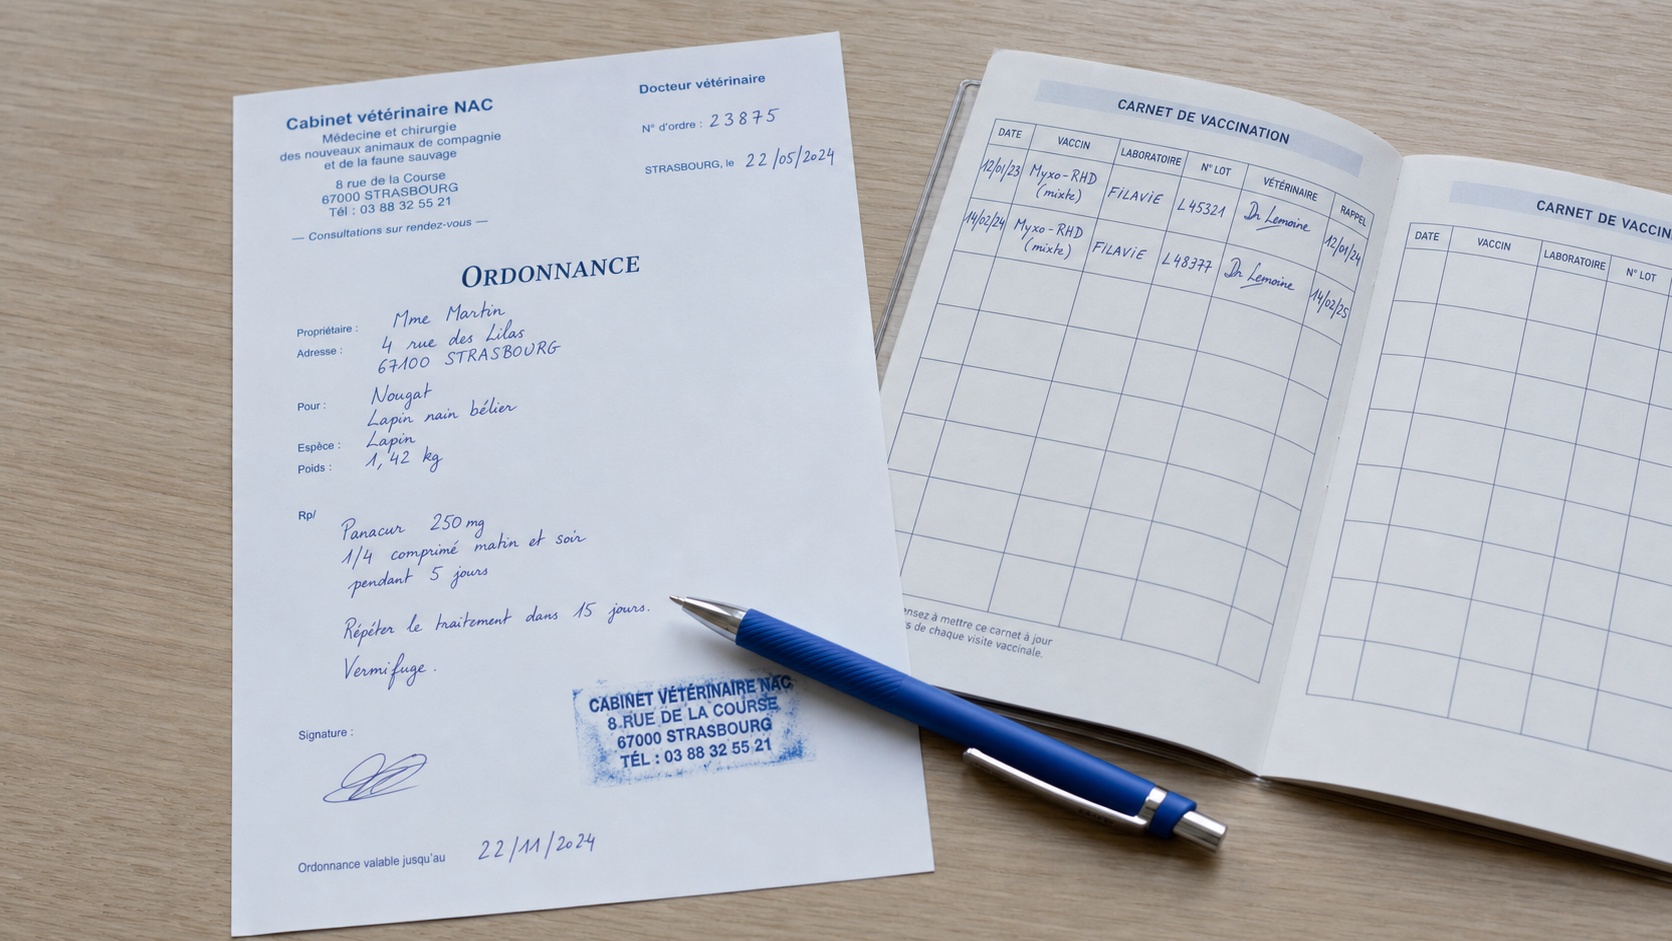 Cabinet vétérinaire NAC
Médecine et chirurgie
des nouveaux animaux de compagnie
et de la faune sauvage
8 rue de la Course
67000 STRASBOURG
Tél : 03 88 32 55 21
— Consultations sur rendez-vous —
Docteur vétérinaire
N° d'ordre : 23875
STRASBOURG, le 22/05/2024
ORDONNANCE
Propriétaire : Mme Martin
Adresse : 4 rue des Lilas
67100 STRASBOURG
Pour : Nougat
Lapin nain bélier
Espèce : Lapin
Poids : 1,42 kg
Rp/
Panacur 250 mg
1/4 comprimé matin et soir
pendant 5 jours
Répéter le traitement dans 15 jours.
Vermifuge.
CABINET VÉTÉRINAIRE NAC
8 RUE DE LA COURSE
67000 STRASBOURG
TÉL : 03 88 32 55 21
Signature :
Ordonnance valable jusqu'au 22/11/2024
CARNET DE VACCINATION
DATE VACCIN LABORATOIRE N° LOT VÉTÉRINAIRE RAPPEL
12/01/23 Myxo-RHD (mixte) FILAVIE L45321 Dr Lemoine 12/01/24
14/02/24 Myxo-RHD (mixte) FILAVIE L48377 Dr Lemoine 14/02/25
ensez à mettre ce carnet à jour
s de chaque visite vaccinale.
CARNET DE VACCIN
DATE VACCIN LABORATOIRE N° LOT